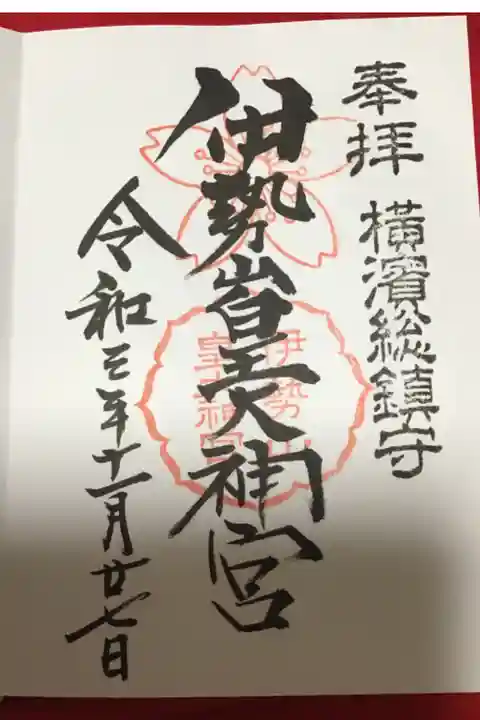 奉拝
横濱総鎮守
伊勢山皇大神宮
伊勢山
皇大神宮
令和三年十一月廿七日